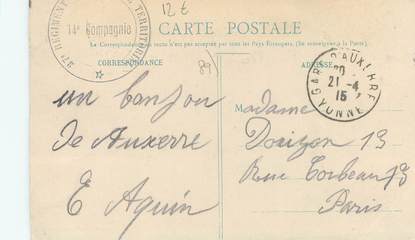 12 €
CARTE POSTALE
La Correspondance au recto n'est pas acceptée par tous les Pays Etrangers. (Se renseigner à la Poste).
27e REGIMENT TERRITORIAL
14e Compagnie
CORRESPONDANCE
89
ADRESSE
GARE D'AUXERRE
21-4
15
YONNE
un bonjou
de Auxerre
E Aquin
Madame
Doizon 13
Rue Corbeau 13
Paris